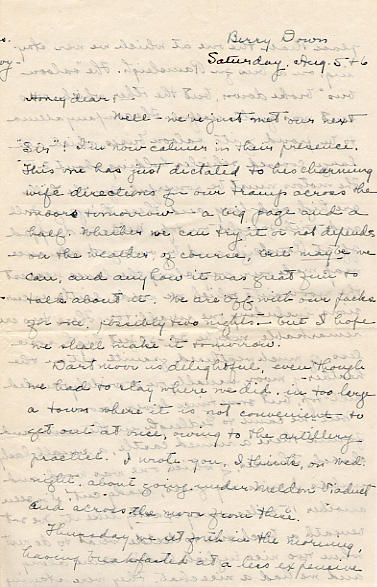 Berry Down
Saturday, Aug. 5 + 6
Honey dear;
Well - we've just met our next
"Sir"! I'm now calmer in their presence.
This one has just dictated to his charming
wife directions for our tramp across the
moors tomorrow - a big page and a
half. Whether we can try it or not depends
on the weather, of course, but maybe we
can, and anyhow it was great fun to
talk about it. We are off with our packs
for one, possibly two nights - but I hope
we shall make it tomorrow.
Dartmoor is delightful, even though
we had to stay where we did. in too large
a town where it is not convenient to
get out at nice, owing to the artillery
practice. I wrote you, I think, on Wed.
night about going under Meldon Viaduct
and across the moor from there.
Thursday we set forth in the morning,
having breakfasted at a less expensive